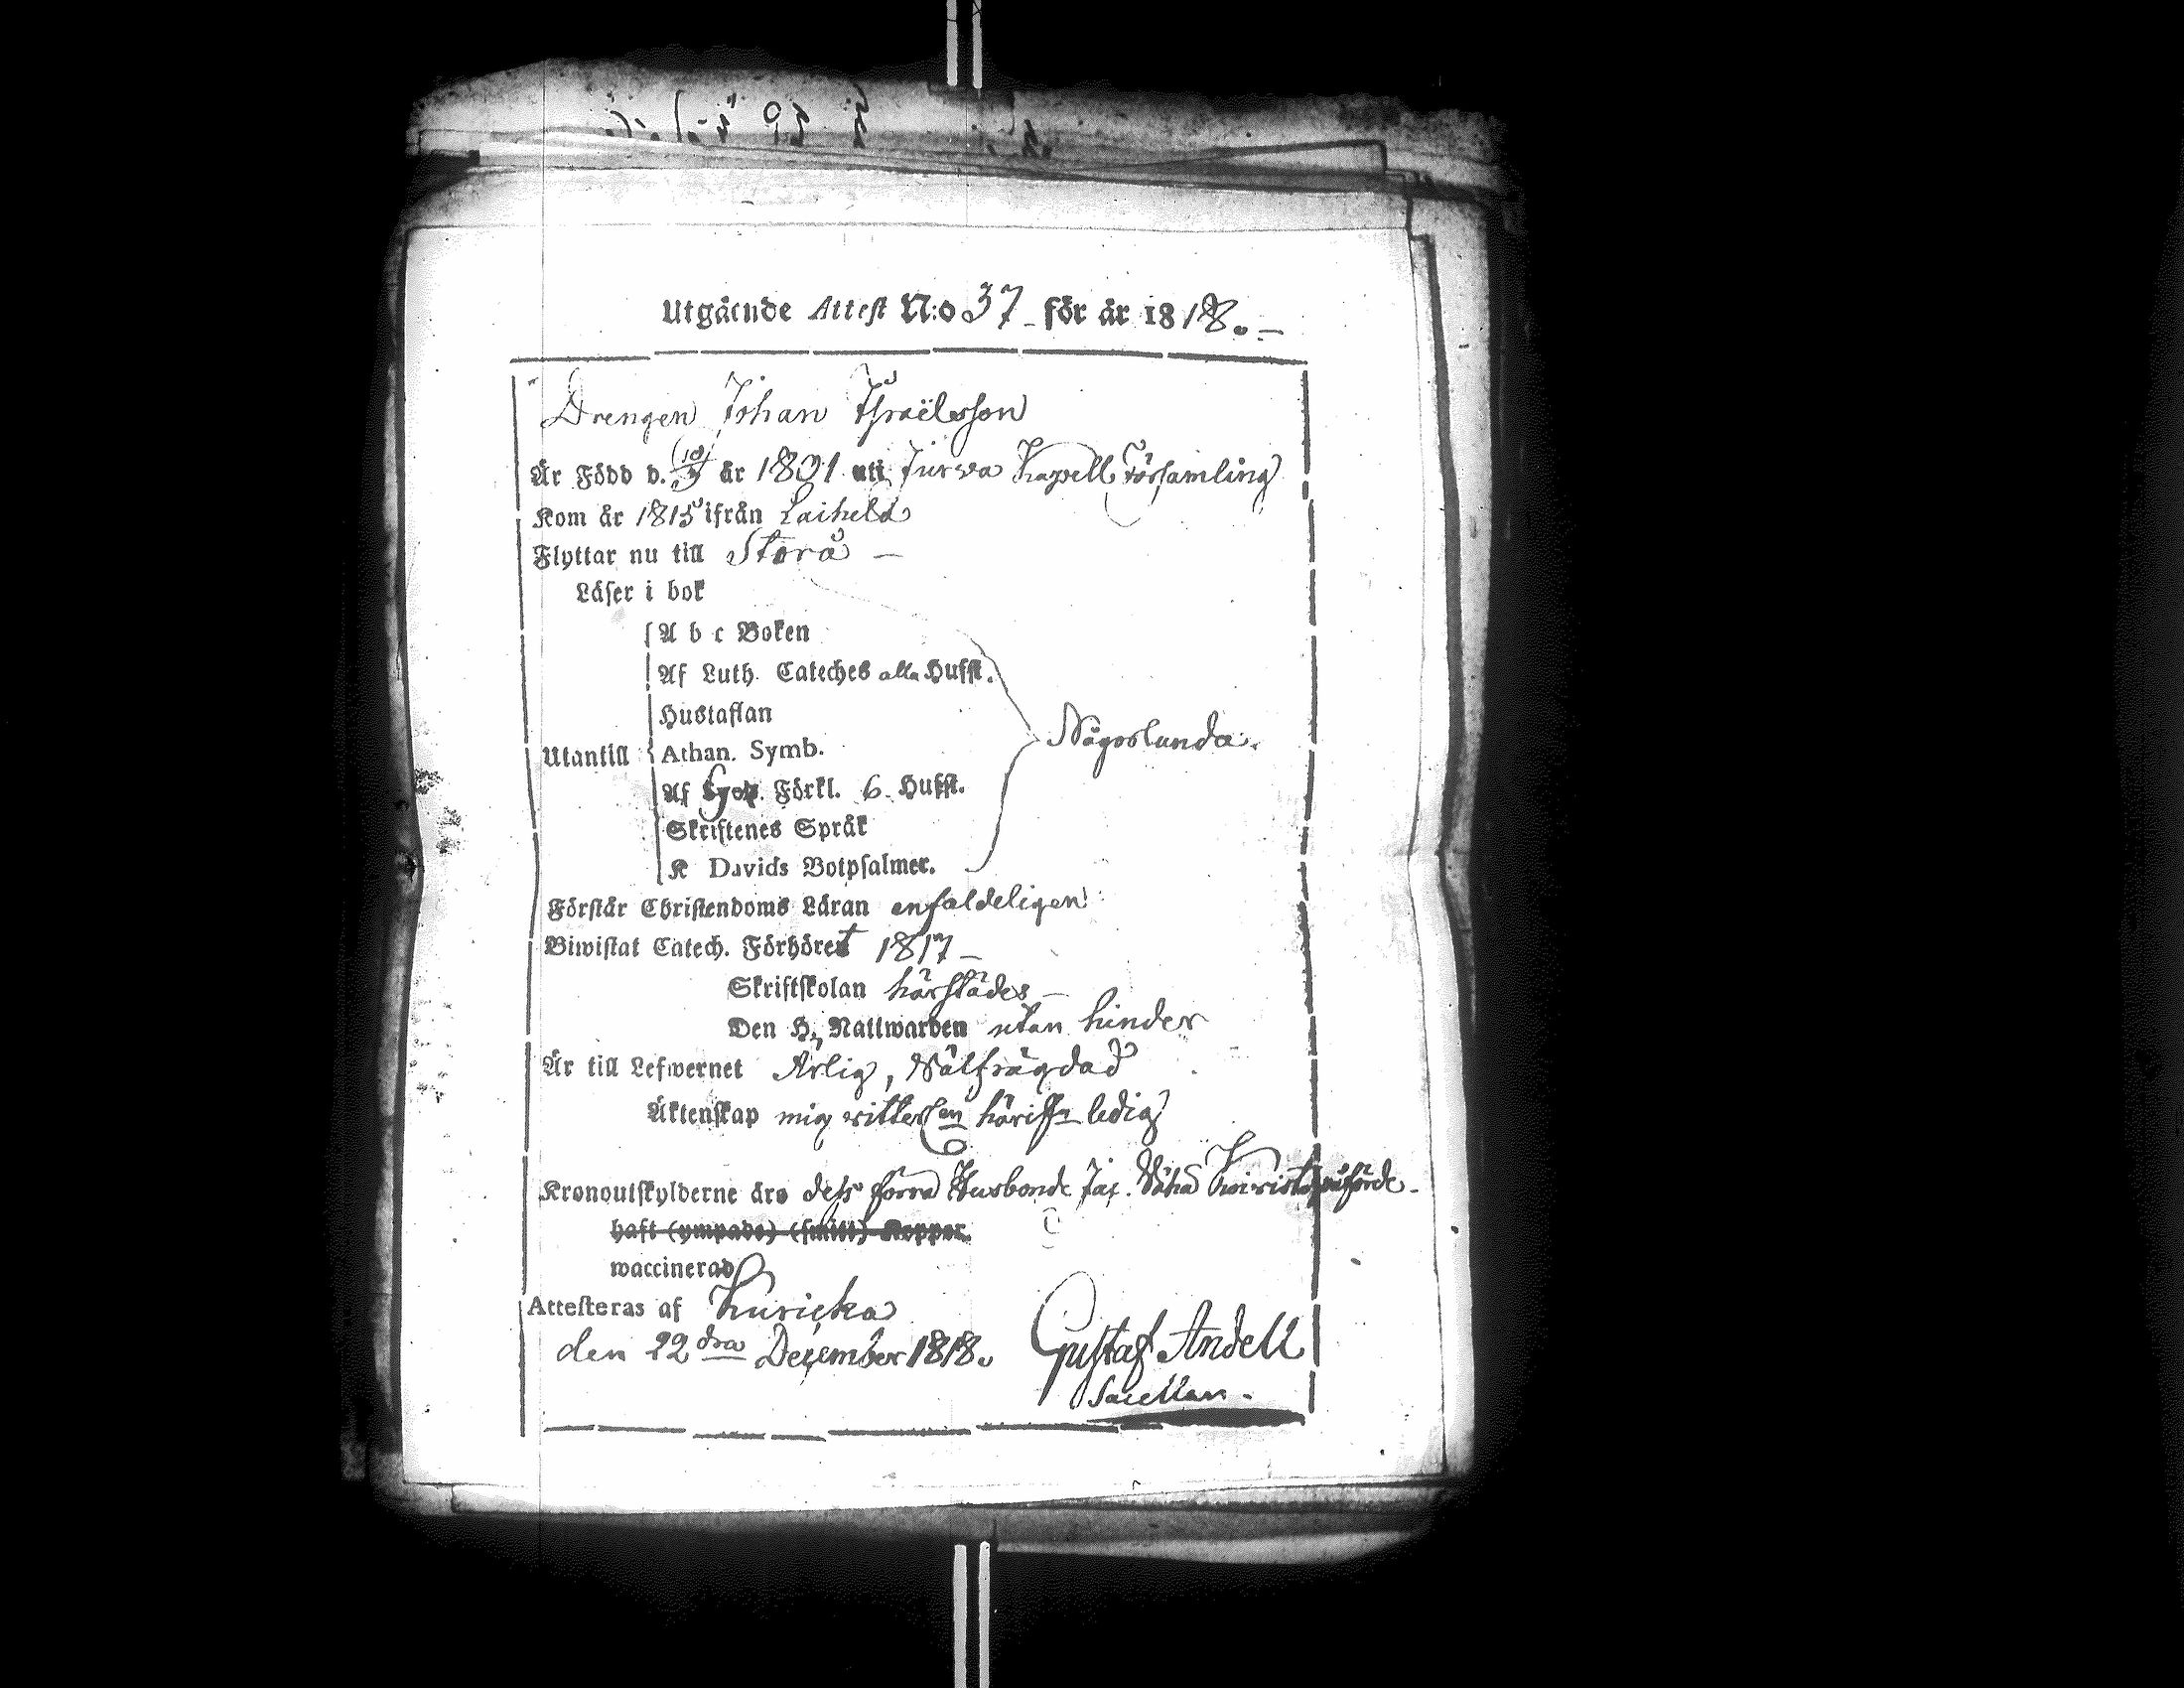 Utgående Attest N:o 37 för år 1818.
Drengen Johan Israëlsson
Är Född d. 18/3 år 1801 uti Jurva Kapell Församling
Kom år 1815 ifrån Laihela
Flyttar nu till Storå
Läser i bok
A b c Boken
Af Luth. Cateches alla Hufst.
Hustaflan
Någorlunda.
Utantill Athan. Symb.
Af Förkl. 6 Hufst.
Skriftenes Språk
K Davids Botpsalmer.
Förstår Christendoms Läran enfaldeligen
Biwistat Catech. Förhöret 1817
Skriftskolan härstädes
Den H. Nattwarden utan hinder
Är till Lefwernet Ärlig, Wälfrägdad
Äktenskap mig witterlen ledig
Kronoutskylderne äro dess förra Husbonde påförde.
haft (ympade) (smitt) Koppor.
waccinerad
Attesteras af Kuricka
den 22 dra December 1818. Gustaf Andell
Sacellan.